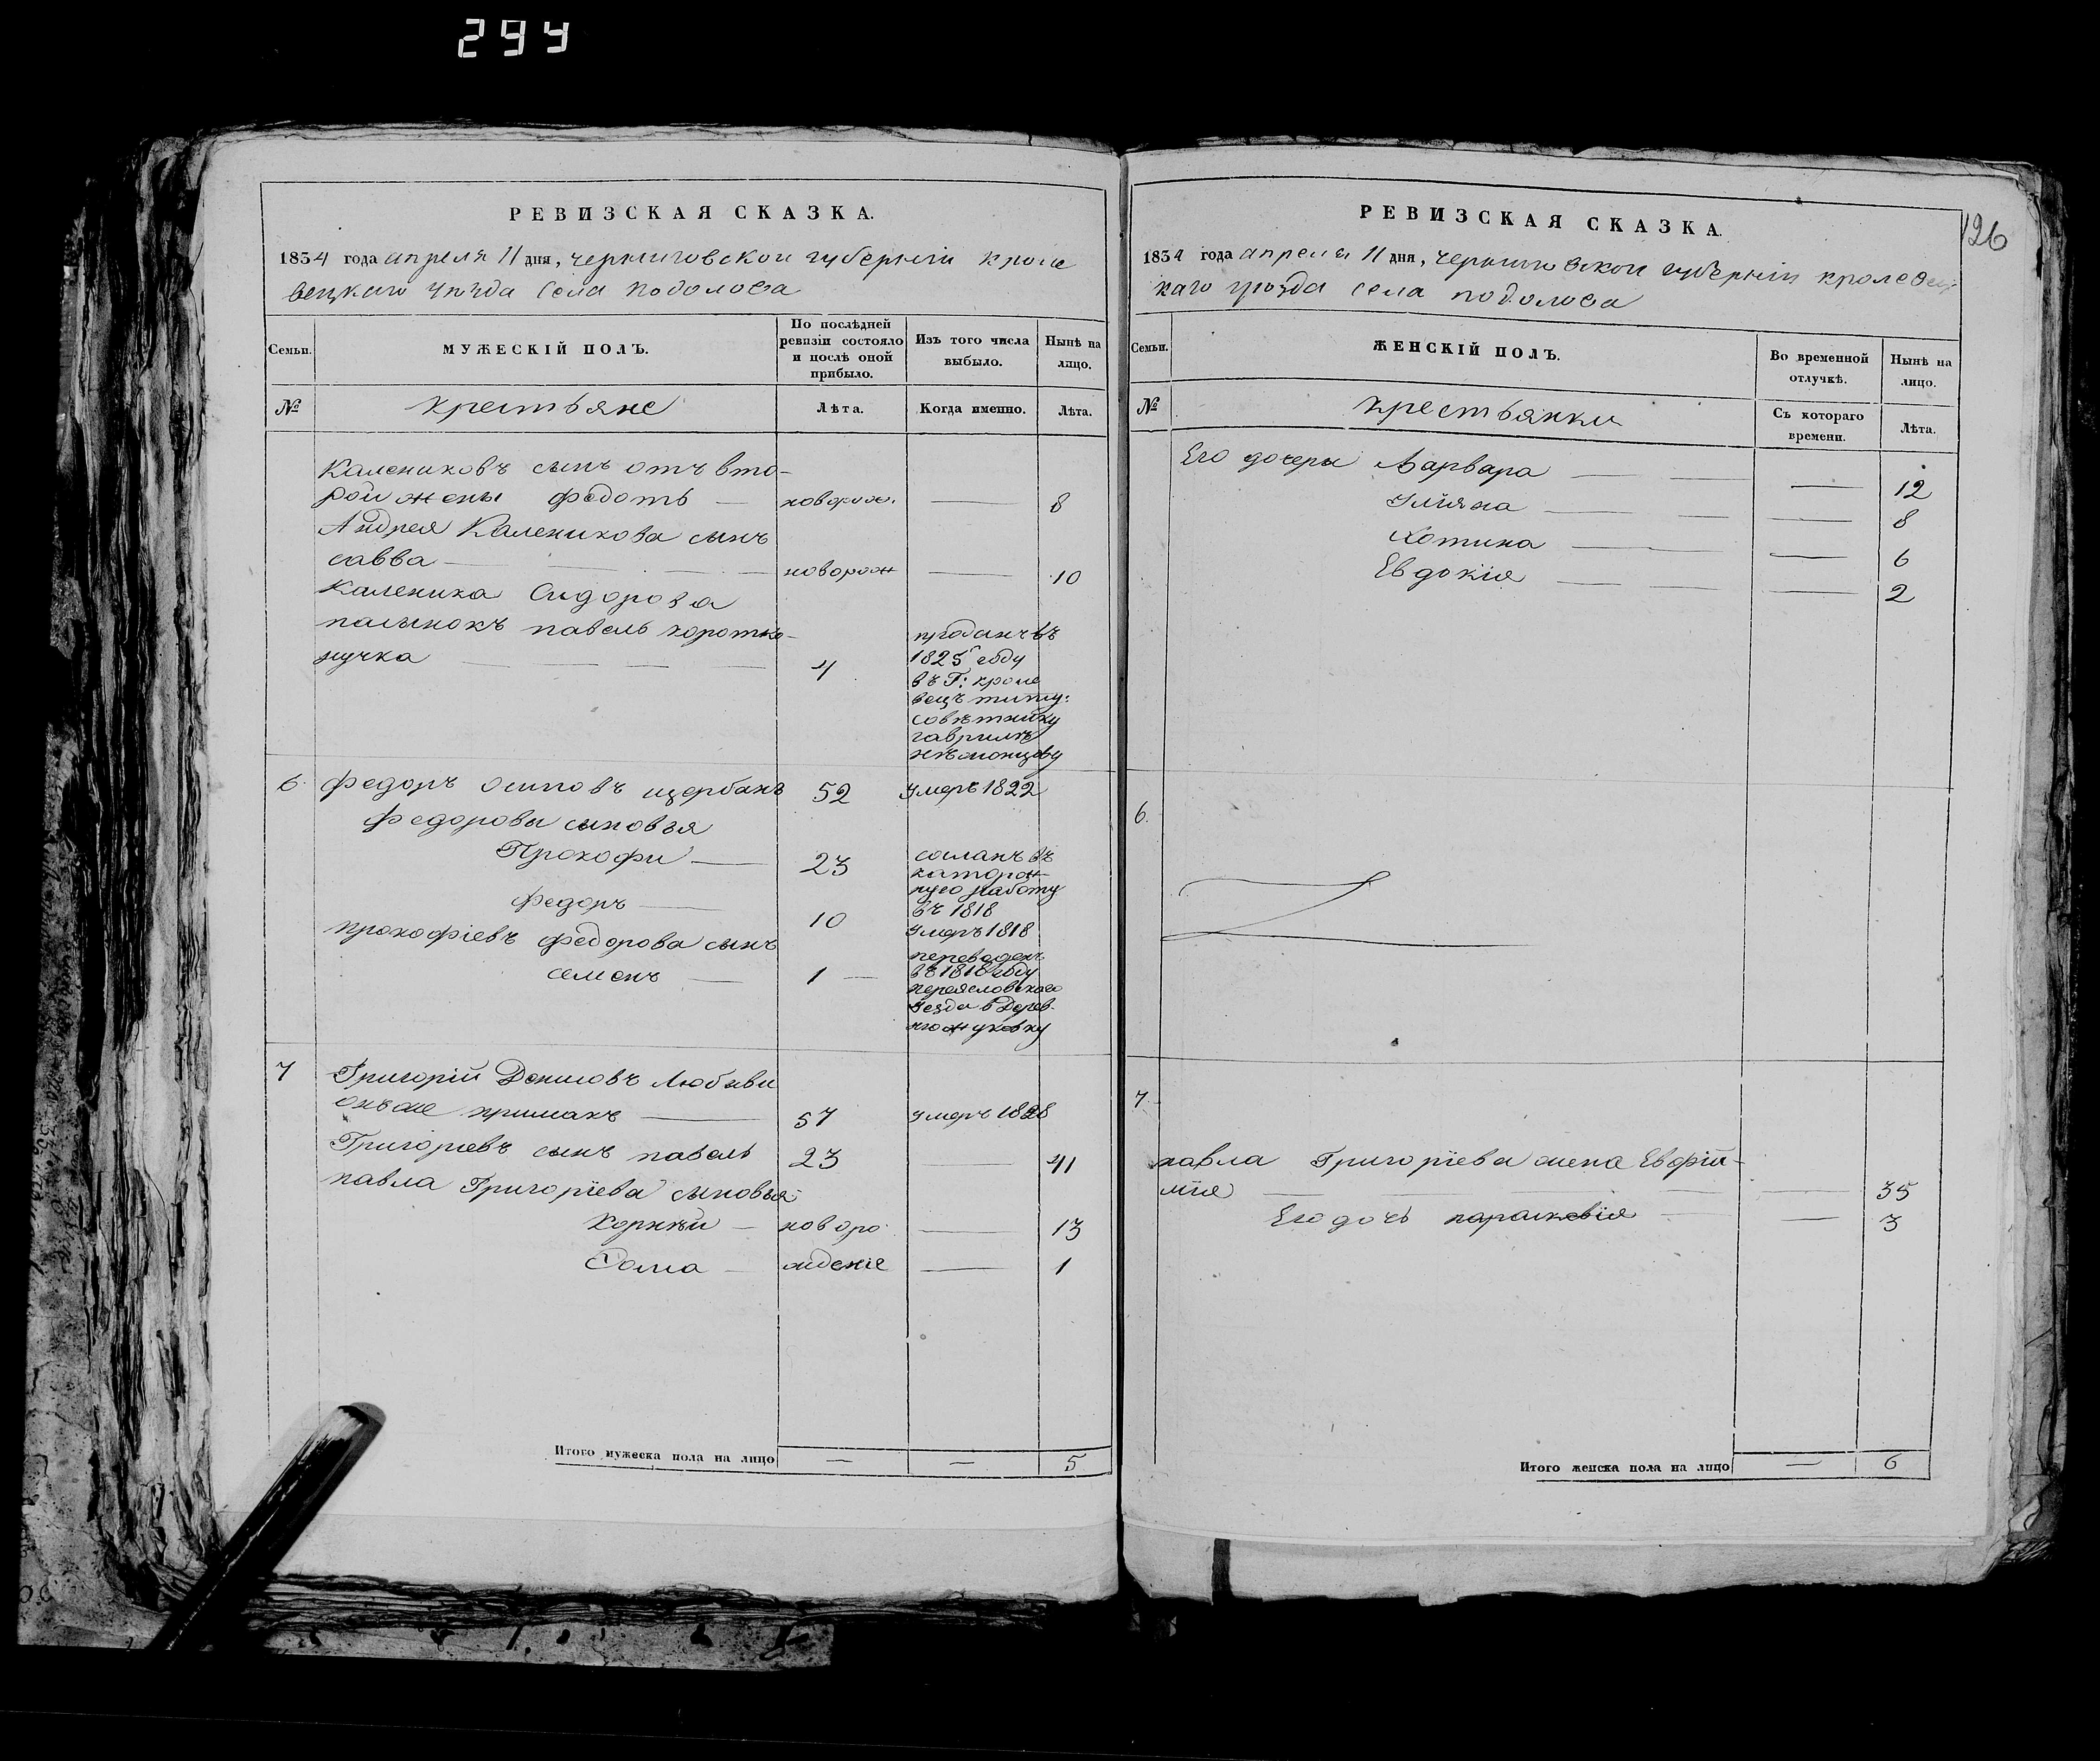 294
РЕВИЗСКАЯ СКАЗКА.
1834 года апреля 11 дня, черниговской губерніи кроле
вецкаго уезда села подолова
Семьи. МУЖЕСКІЙ ПОЛЪ. По послѣдней ревизіи состояло и послѣ оной прибыло. Изъ того числа выбыло. Нынѣ на лицо.
№ крестьяне Лѣта. Когда именно. Лѣта.
Калениковъ сынъ отъ вто-
рой жены федотъ — новорож. — 8
Андрея Каленикова сынъ
савва — новорож — 10
Каленика Сидорова
пасынокъ павелъ коротко-
ручка — 4 проданъ въ
1825 году
въ Г: кроле
вецъ титу:
совѣтнику
гаврилѣ
6. федоръ осиповъ щербакъ 52 умеръ 1822
федоровы сыновья
Прокофи — 23 сосланъ въ
каторж
ную работу
въ 1818
федоръ — 10 умеръ 1818
прокофіевъ федорова сынъ
семенъ — 1 — переведенъ
въ 1818 году
переясловскаго
уезда в Дерев-
ню жуковку
7 Григорій Денисовъ
онъ же примакъ — 57 умеръ 1828
Григориевъ сынъ павелъ 23 — 41
павла Григоріева сыновья
Корнѣй — новоро — 13
Фома — ждение — 1
Итого мужеска пола на лицо — — 5
126
РЕВИЗСКАЯ СКАЗКА.
1834 года апреля 11 дня, черниговской губерніи кролевец
каго уезда села подолова
Семьи. ЖЕНСКІЙ ПОЛЪ. Во временной отлучкѣ. Нынѣ на лицо.
№ крестьянки Съ котораго времени. Лѣта.
Его дочери Варвара — — 12
Улияна — — 8
Хотина — — 6
Евдокія — — 2
6.
7.
павла Григоріева жена Евфій-
мія — — 35
Его дочь параскевія — — 3
Итого женска пола на лицо — 6